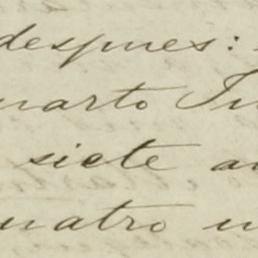 despues:
uarto
siete
uatro